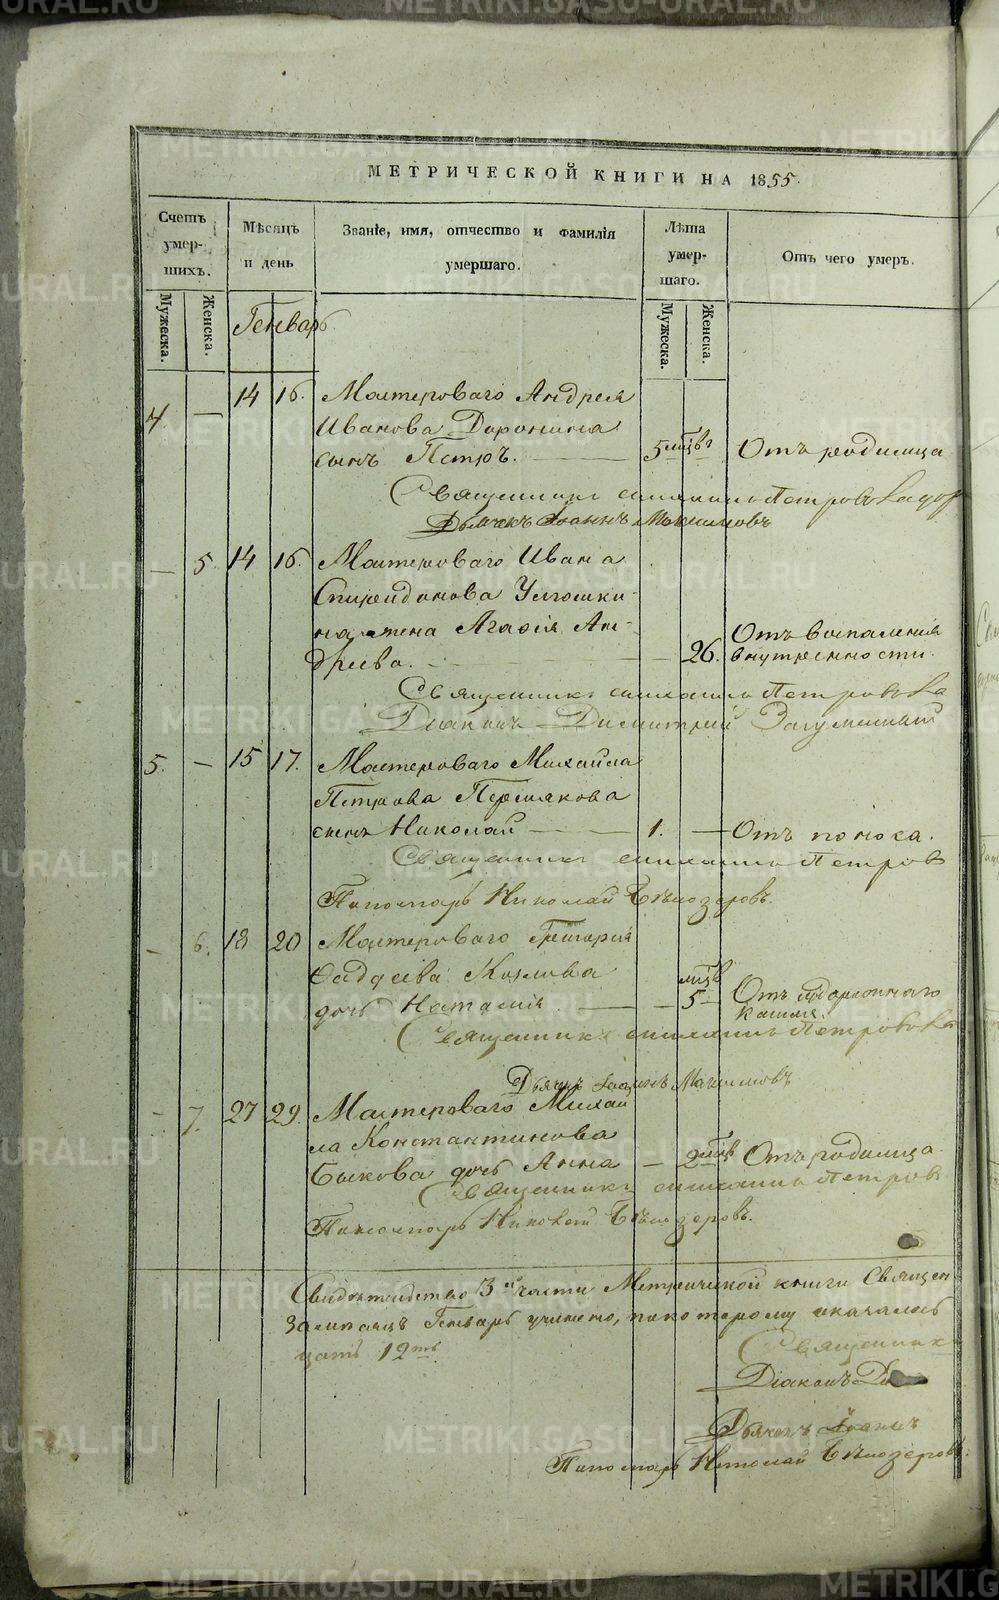 МЕТРИЧЕСКОЙ КНИГИ НА 1855.
Счетъ умер-шихъ.
Мѣсяцъ и день
Званіе, имя, отчество и фамилія умершаго.
Лѣта умер-шаго.
Отъ чего умеръ.
Мужеска.
Женска.
Мужеска.
Женска.
Генварь.
4 — 14 16. Мастероваго Андрея
Иванова Доронина
сынъ Петръ. 5 мцвъ Отъ родимца
Священникъ Петровъ
Дьячекъ Іоаннъ Максимовъ
— 5 14 16. Мастероваго Ивана
Спиридонова
на жена Агафія Ан-
дреева. 26. Отъ воспаленія
внутренности.
Священникъ Петровъ
Діаконъ Димитрій
5. — 15 17. Мастероваго Михайла
Петрова Пермякова
сынъ Николай 1. — Отъ поноса.
Священникъ Петровъ
Пономарь Николай Бѣлозеровъ.
— 6. 18 20 Мастероваго Григорія
Фадѣева Козлова
дочь Наталія — мцвъ 5 Отъ
кашля.
Священникъ Петровъ
Дьячекъ Іоаннъ Максимовъ
— 7. 27 29. Мастероваго Михай
ла Константинова
Быкова дочь Анна — 2 мцвъ Отъ родимца
Священникъ Петровъ
Пономарь Николай Бѣлозеровъ.
Свидѣтельство 3й части Метрической книги Священ
за мѣсяцъ Генварь учинено, по которому оказалось
цать 12ть.
Священник
Діаконъ
Дьячекъ Іоаннъ
Пономарь Николай Бѣлозеровъ.
METRIKI.GASO-URAL.RU